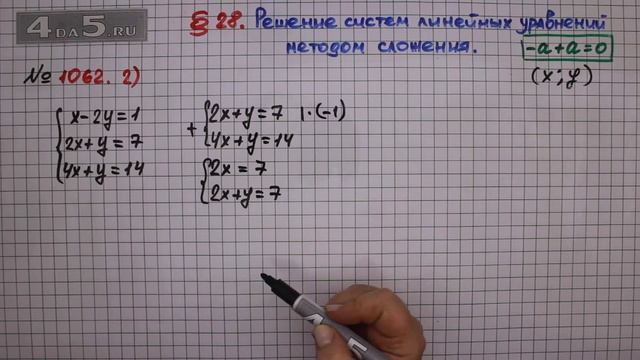 4DA5.RU
§ 28. Решение систем линейных уравнений
методом сложения.
-a+a=0
№ 1062. 2)
(x; y)
x-2y=1
2x+y=7
4x+y=14
+
2x+y=7 |·(-1)
4x+y=14
2x=7
2x+y=7